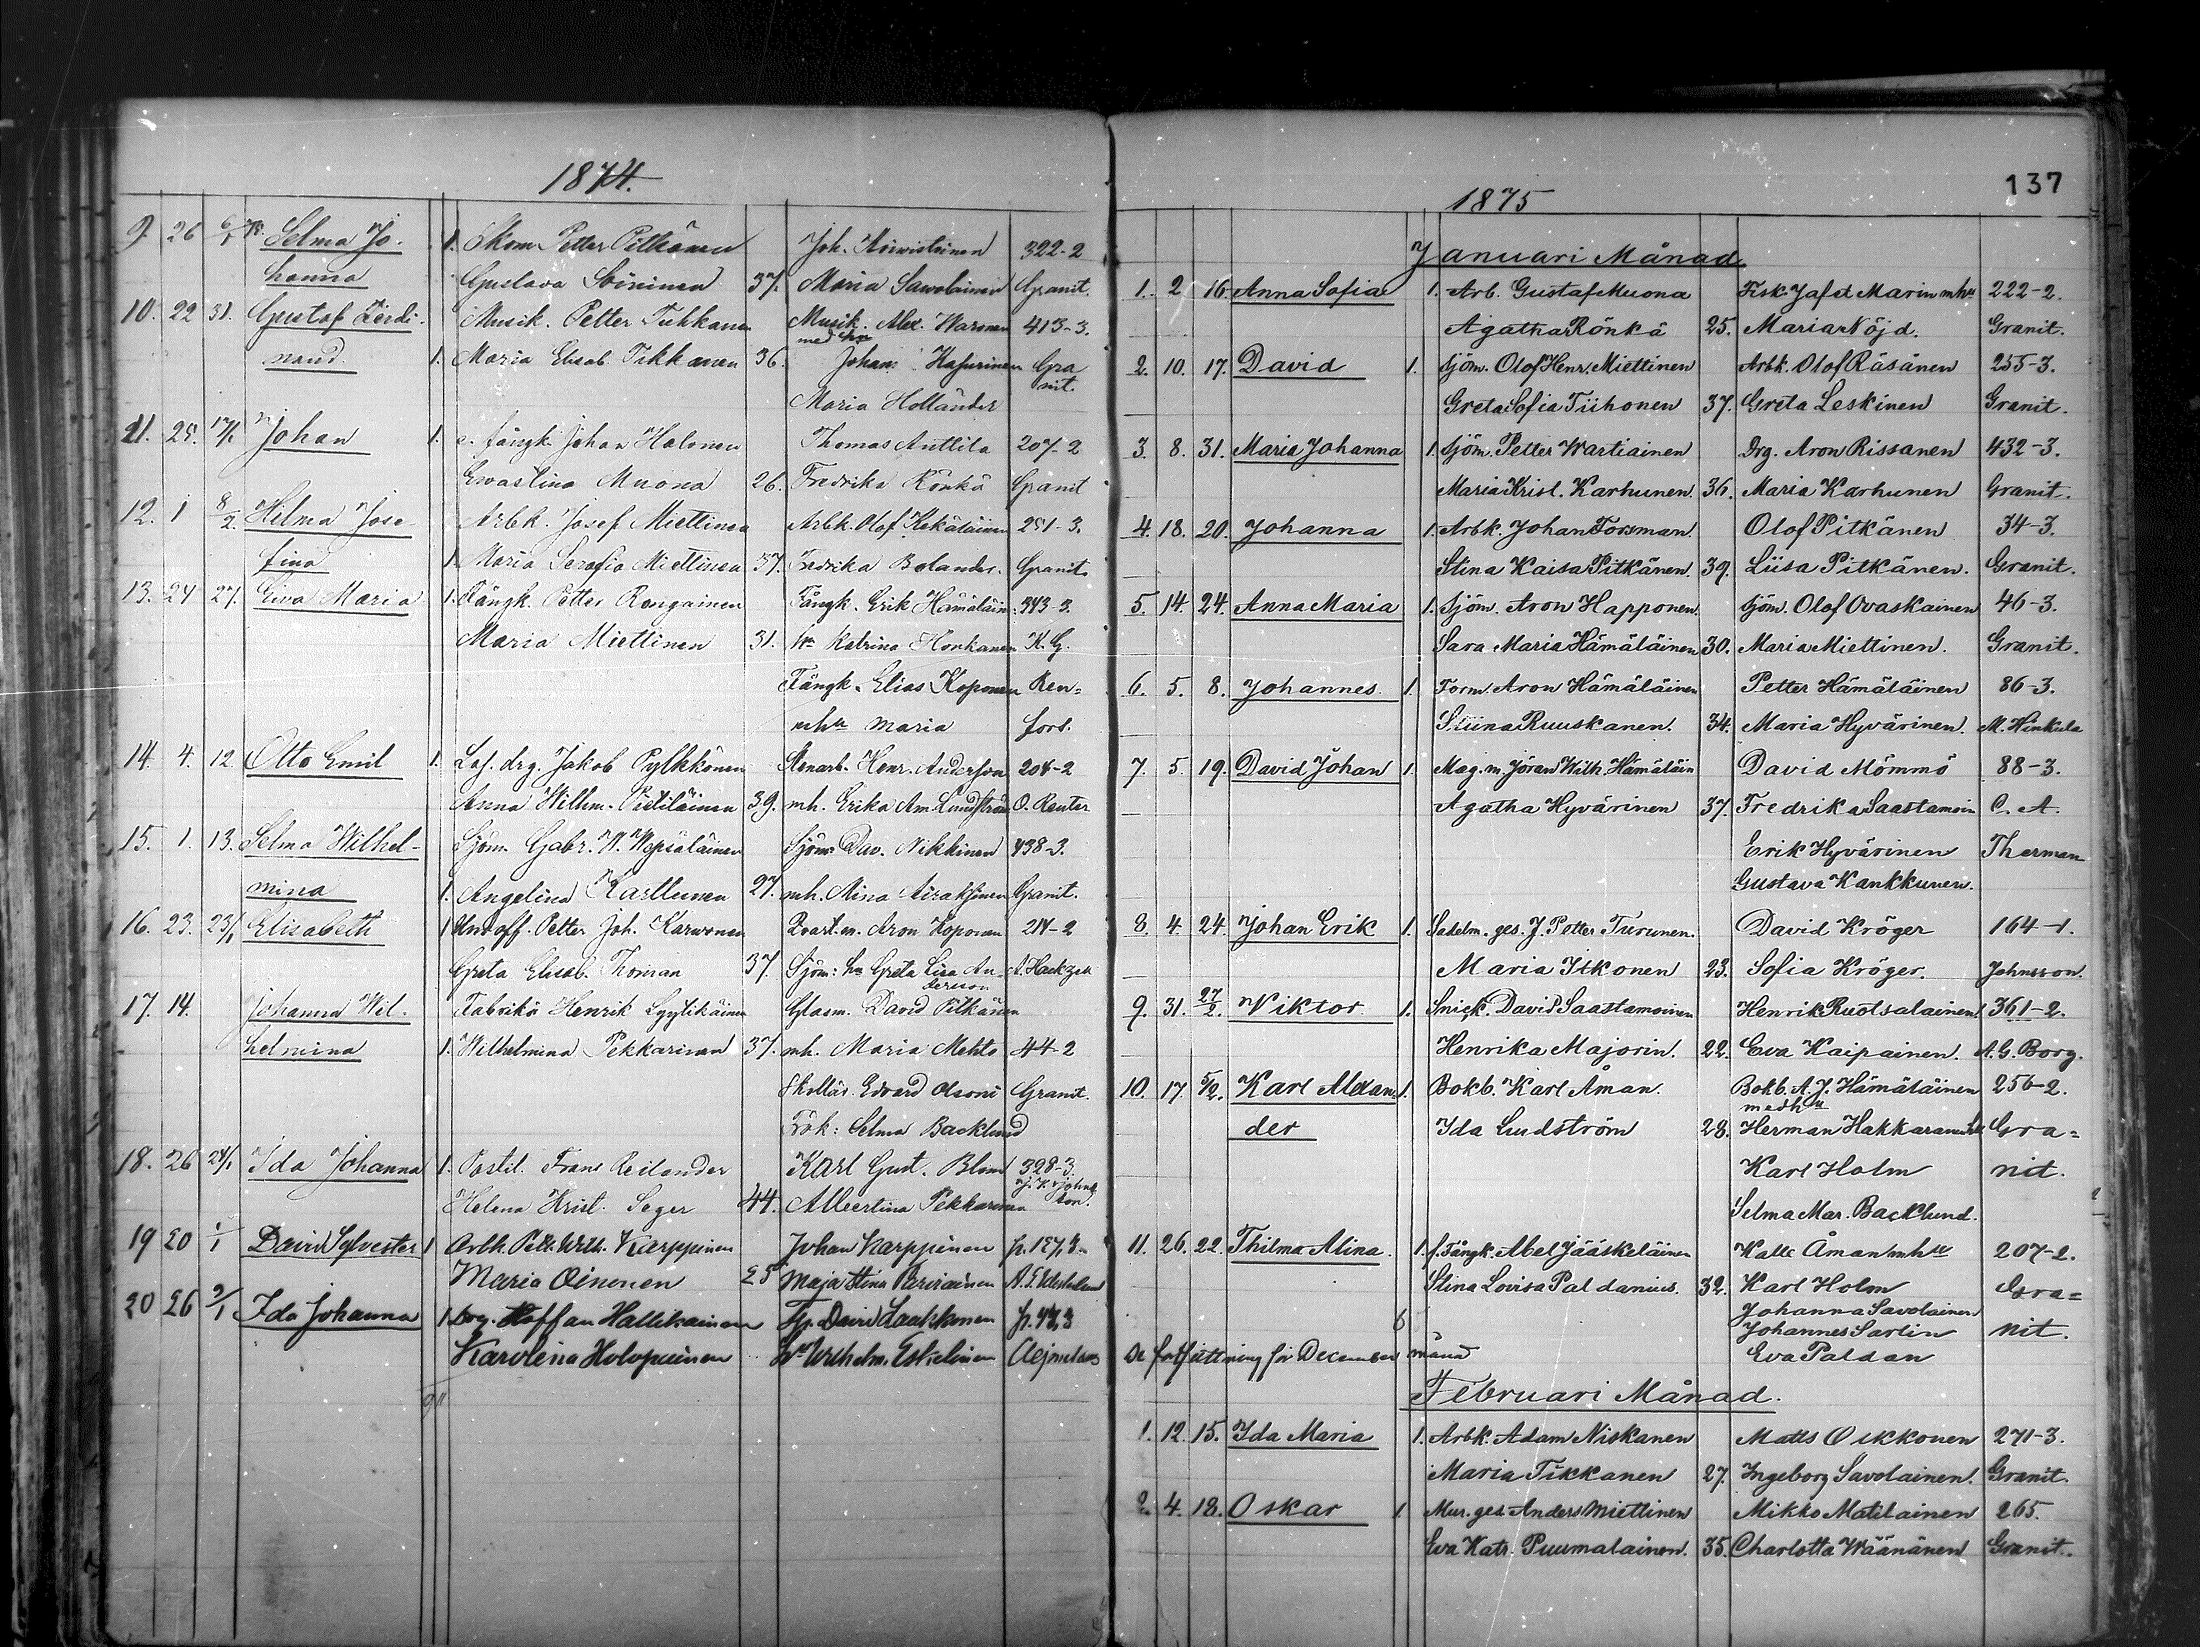 1874.
9. 26 6/1 75. Selma Jo- 1. Ekon. Petter Pitkänen Joh. 322-2
hanna Gustava Soininen 37. Maria Sawolainen Granit.
10. 22 31. Gustaf Ferdi- Musik. Petter Tuhkanen Musik. Alex. Waronen 413-3.
med hu
nand. 1. Maria Elisab. Tikkanen 36. Johan Gra
nit.
Maria Holländer
11. 25. 17/1 Johan 1. e. fångk. Johan Halonen Thomas Anttila 207-2
Ewastina Muona 26. Fredrika Rönkä Granit
12. 1 8/2. Hilma Jose Arbk. Josef Miettinen Arbk. Olof 251-3.
fina 1. Maria Serafia Miettinen 37. Fredrika Bolander. Granit.
13. 24 27. Ewa Maria 1. Fångk. Petter Rongainen Fångk. Erik Hämäläin. 343-3.
Maria Miettinen 31. hu Katrina Honkanen K. G.
Fångk. Elias Koponen Ren=
mhu Maria fors.
14. 4. 12 Otto Emil 1. Löj. drg. Jakob Pylkkönen Stenarb. Henr. Anderson 204-2
Anna Wilhm. Pistiläinen 39. mh. Erika Am. Lundström O. Reuter
15. 1. 13. Selma Wilhel- Sjöm. Gabr. W. Wepsäläinen Sjöm. Dav. Nikkinen 438-3.
mina 1. Angelina Karttunen 27. mh. Mina Airaksinen Granit.
16. 23. 23/1 Elisabeth 1 Undoff. Petter Joh. Karwonen Qvart.m. Aron Koponen 214-2
Greta Elisab. Thoman 37. Sjöm: hu Greta Lisa An- A. Hackzell
derson
17. 14. Johanna Wil- Fabrikö Henrik Lyytikäinen Glasm. David Pitkänen
helmina 1. Wilhelmina Pekkarinen 37. mh. Maria Mehto 44-2
Skollär. Edvard Olsoni Granit.
Frök: Selma Backlund
18. 26 24/1 Ida Johanna 1. Postil. Frans Reilander Karl Gust. Blom 328-3.
Helena Krist. Seger 44. Albertina Pekkarinen
19 20 1/1 David Sylvester 1 Arbk. Pett. Wilh. Karppinen Johan Karppinen
Maria Oinonen 25 Maja Stina
20 26 9/1 Ida Johanna 1. Drg. Staffan Hallikainen David Laakkonen
Karolina Holopainen hu Wilhelm. Eskelinen
137
1875
Januari Månad
1. 2 16. Anna Sofia 1. Arb. Gustaf Muona Fisk. Jafet Marin mhu 222-2.
Agatha Rönkä 25. Maria Nöjd. Granit.
2. 10. 17. David 1. Sjöm. Olof Henr. Miettinen Arbk. Olof Räsänen 255-3.
Greta Sofia Tiihonen 37. Greta Leskinen Granit.
3. 8. 31. Maria Johanna 1. Sjöm. Petter Wartiainen Drg. Aron Rissanen 432-3.
Maria Krist. Karhunen. 36. Maria Karhunen Granit.
4. 18. 20. Johanna 1. Arbk. Johan Forsman. Olof Pitkänen 34-3.
Stina Kaisa Pitkänen. 39. Liisa Pitkänen. Granit.
5. 14. 24. Anna Maria 1. Sjöm. Aron Happonen. Sjöm. Olof Ovaskainen 46-3.
Sara Maria Hämäläinen 30. Maria Miettinen. Granit.
6. 5. 8. Johannes. 1. Torm. Aron Hämäläinen Petter Hämäläinen 86-3.
Stiina Ruuskanen. 34. Maria Hyvärinen. M. Hinkula
7. 5. 19. David Johan 1. Mag. m Jöran Wilh. Hämäläin David Mömmö 88-3.
Agatha Hyvärinen 37. Fredrika Saastamoin C. A.
Erik Hyvärinen Therman
Gustava Kankkunen.
8. 4. 24. Johan Erik 1. Sadelm. ges. J. Petter Turunen. David Kröger 164-1.
Maria Itkonen 23. Sofia Kröger. Johnsson.
9. 31. 27/2. Viktor 1. Snick. David Saastamoinen Henrik Ruotsalainen 361-2.
Henrika Majorin. 22. Eva Kaipainen. A. G. Borg.
10. 17. 5/2. Karl Alexan- 1. Bokb. Karl Åman. Bokb. A. J. Hämäläinen 256-2.
med hu
der Ida Lundström 28. Herman Hakkarainen Gra=
Karl Holm nit.
Selma Mar. Backlund.
11. 26. 22. Thilma Alina. 1. f. Fångk. Abel Jääskeläinen Kalle Åman mhu 207-2.
Stina Lovisa Paldanius. 32. Karl Holm Gra=
Johanna Savolainen
Johannes Sarlin nit.
Se fortsättning för December månad Eva Paldan
Februari Månad.
1. 12. 15. Ida Maria 1. Arbk. Adam Niskanen Matts Oikkonen 271-3.
Maria Tikkanen 27. Ingeborg Savolainen. Granit.
2. 4. 18. Oskar 1. Mur. ges. Anders Miettinen Mikko Matilainen 265.
Eva Katr. Puumalainen. 35. Charlotta Wäänänen Granit.